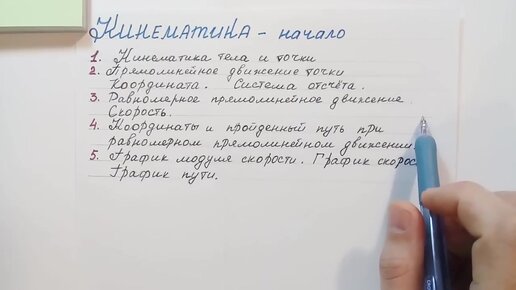 Кинематика - начало
1. Кинематика тела и точки
2. Прямолинейное движение точки
Координата. Система отсчёта.
3. Равномерное прямолинейное движение.
Скорость.
4. Координаты и пройденный путь при
равномерном прямолинейном движении.
5. График модуля скорости. График скорос
График пути.